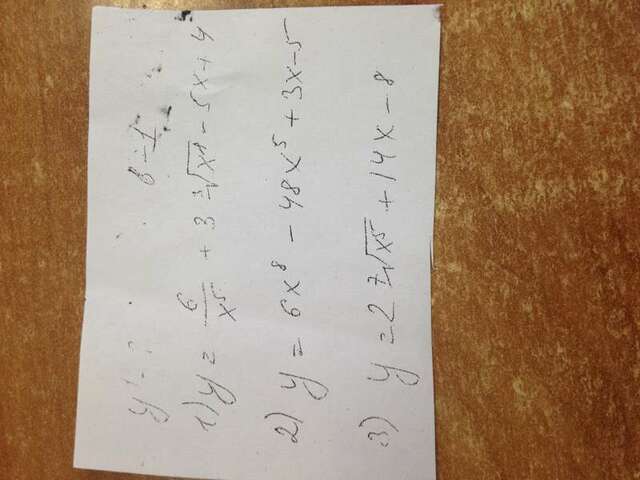 y' = ? в-1
1) y = 6/x⁵ + 3 ³√x⁸ - 5x + 4
2) y = 6x⁸ - 48x⁵ + 3x - 5
3) y = 2 ⁷√x⁵ + 14x - 8